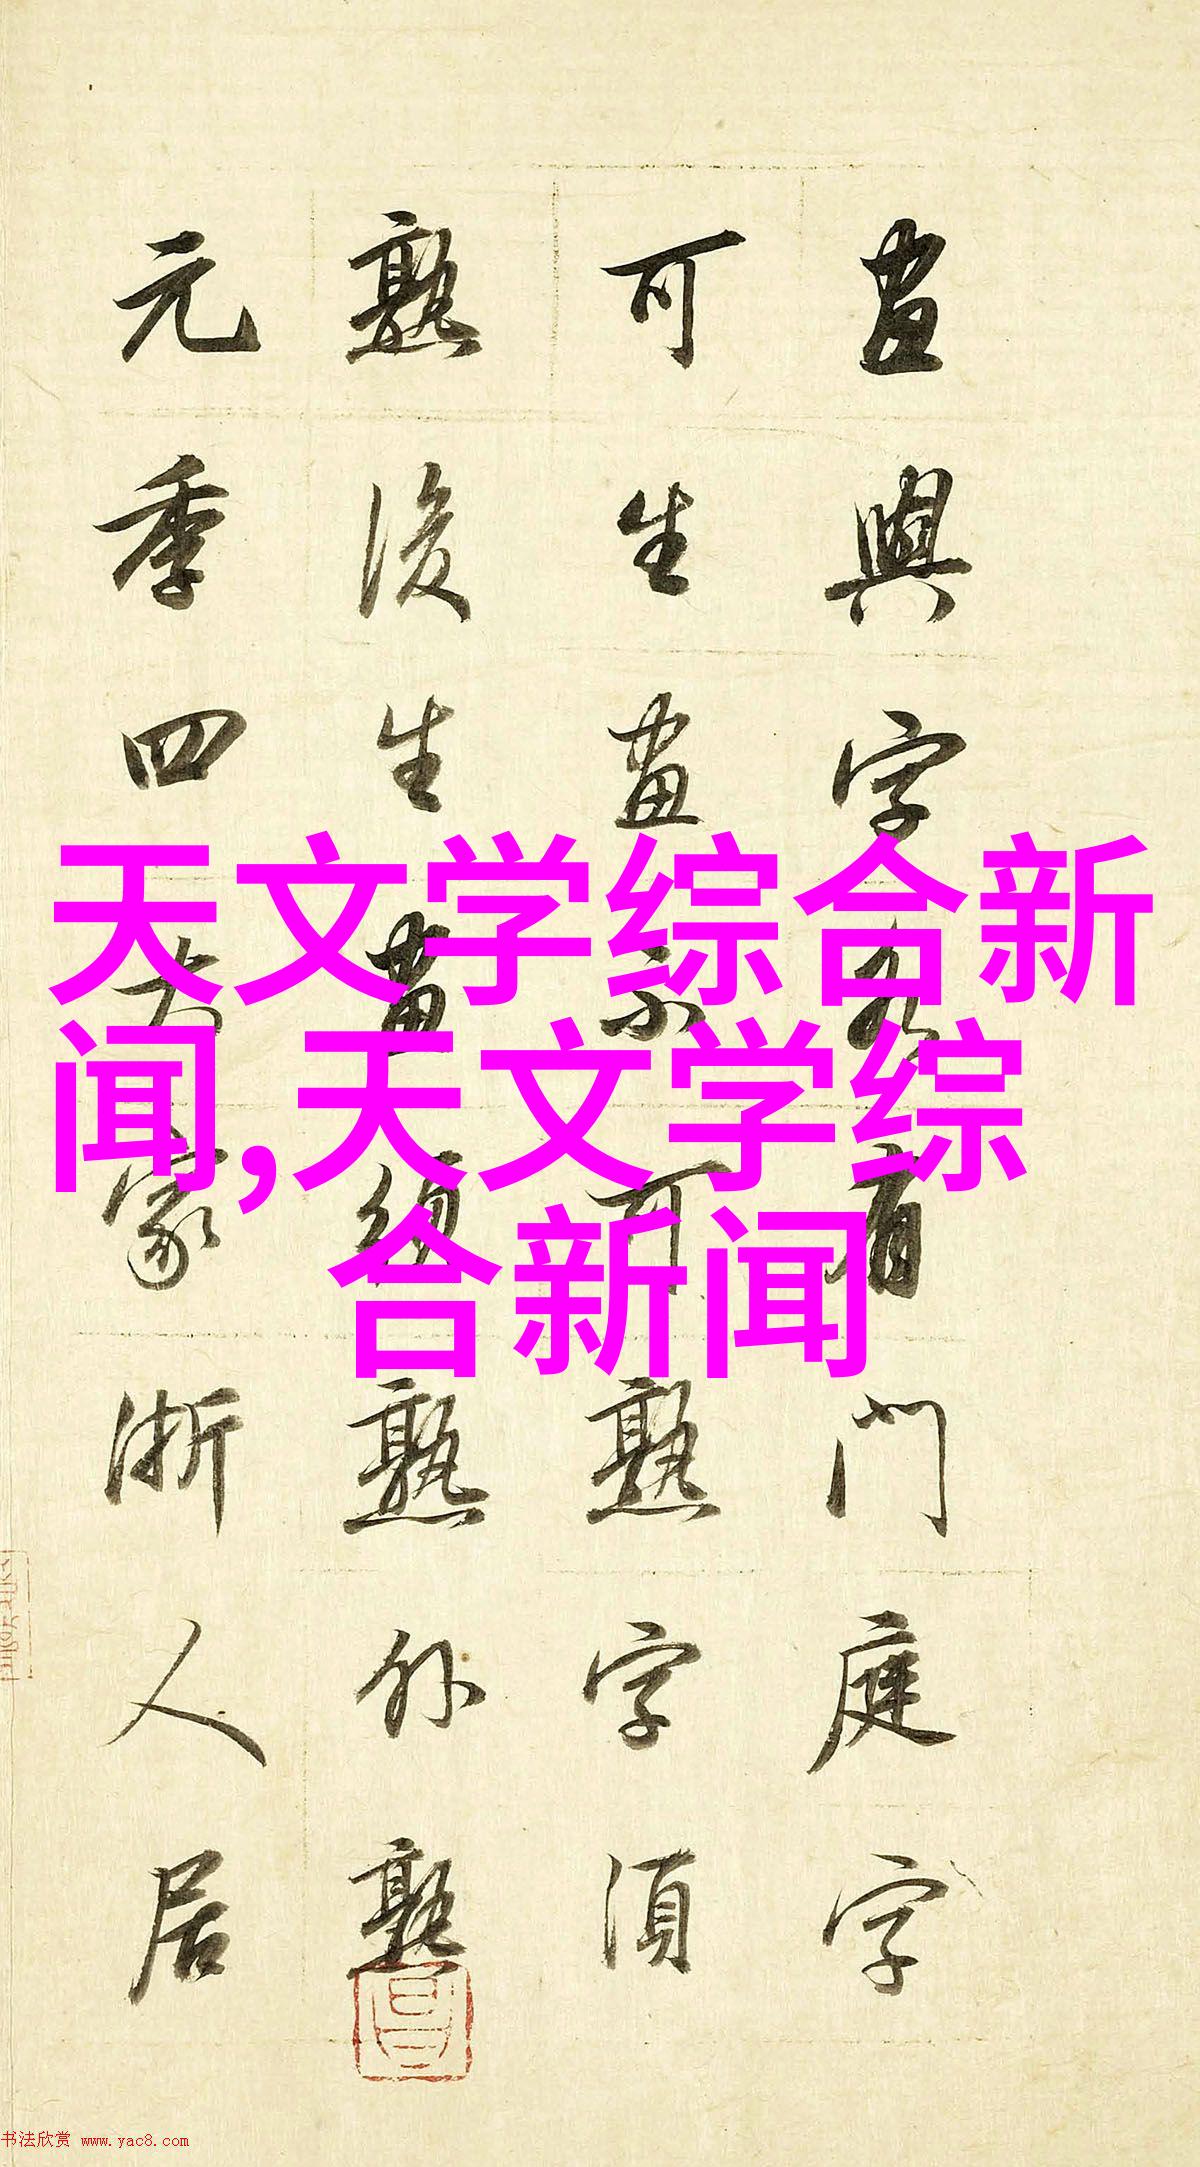 天文学综合新
闻,天文学综
合新闻
畫與字各有門庭字
可生畫不可熟字須
熟後生畫須熟外熟
元季四大家浙人居
书法欣赏 www.yac8.com